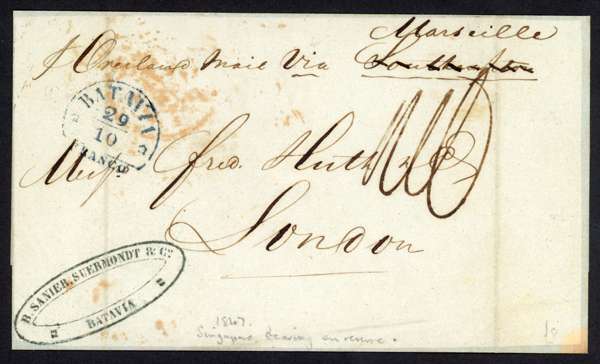 Marseille
pr Overland Mail Via Southampton
BATAVIA
29
10
FRANCO
Messrs fred. Huth & Co
London
B. SANIER, SUERMONDT & Co.
BATAVIA
1847.
Singapore bearing on reverse.